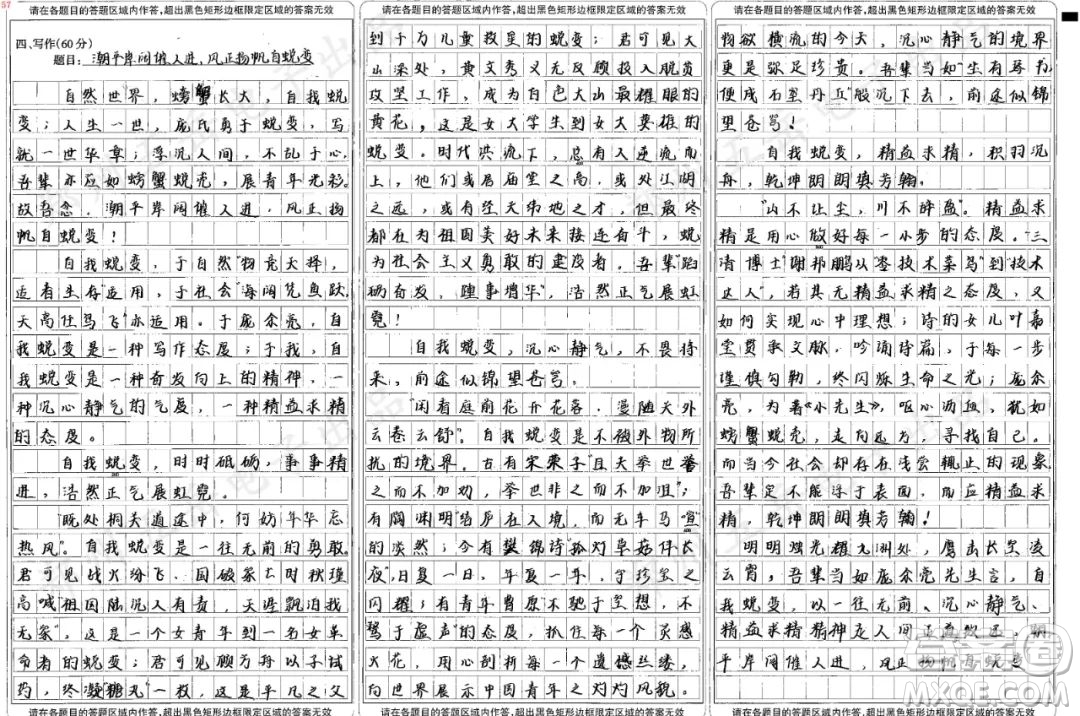 57
请在各题目的答题区域内作答,超出黑色矩形边框限定区域的答案无效
四、写作(60分)
题目：潮平岸阔催人进,风正扬帆自蜕变
自然世界，螃蟹长大，自我蜕
变；人生一世，庞氏勇于蜕变，写
就一世华章；浮沉人间，不乱于心，
吾辈亦应如螃蟹蜕壳，展青年光彩。
故吾念，潮平岸阔催人进，风正扬
帆自蜕变！
自我蜕变，于自然“物竞天择，
适者生存”适用，于社会“海阔凭鱼跃，
天高任鸟飞”亦适用。于庞余亮，自
我蜕变是一种写作态度；于我，自
我蜕变是一种奋发向上的精神，一
种沉心静气的气度，一种精益求精
的态度。
自我蜕变，时时砥砺，事事精
进，浩然正气展虹霓。
“既处桐关道途中，何妨年华忘
热风”。自我蜕变是一往无前的勇敢。
君可见战火纷飞、国破家亡时秋瑾
高喊“祖国陆沉人有责，天涯飘泊我
无家”，这是一个女青年到一名女革
命者的蜕变；君可见顾方舟以子试
药，终凝“糖丸”一粒，这是平凡之父
请在各题目的答题区域内作答,超出黑色矩形边框限定区域的答案无效
请在各题目的答题区域内作答,超出黑色矩形边框限定区域的答案无效
到千万儿童救星的蜕变；君可见大
山深处，黄文秀义无反顾投入脱贫
攻坚工作，成为百色大山最耀眼的
黄花，这是女大学生到女大英雄的
蜕变。时代洪流下，总有人逆流而
上，他们或居庙堂之高，或处江湖
之远，或有经天纬地之才，但最终
都在为祖国美好未来接连奋斗，蜕
为社会主义勇敢的建设者，吾辈“蹈
砺奋发，踵事增华”，浩然正气展虹
霓！
自我蜕变，沉心静气，不畏将
来，前途似锦望苍穹。
“闲看庭前花开花落，漫随天外
云卷云舒”。自我蜕变是不被外物所
扰的境界。古有宋荣子“且夫举世誉
之而不加劝，举世非之而不加沮”；
有陶渊明“结庐在人境，而无车马喧”
的淡然；今有樊锦诗“孤灯草菇伴长
夜”，日复一日，年复一年，守珍宝之
闪耀；有青年曹原“不驰于空想，不
骛于虚声”的态度，抓住每一个灵感
火花，用心剖析每一个遗憾丝缕，
向世界展示中国青年之灼灼风貌。
请在各题目的答题区域内作答,超出黑色矩形边框限定区域的答案无效
请在各题目的答题区域内作答,超出黑色矩形边框限定区域的答案无效
物欲横流的今天，沉心静气的境界
更是弥足珍贵。吾辈当如“生有蓦为
便成石至丹丘”般沉下去，前途似锦
望苍穹！
自我蜕变，精益求精，积羽沉
舟，乾坤朗朗填芳翰。
“山不让尘，川不辞盈”。精益求
精是用心做好每一小步的态度。“三
清博士”谢邦鹏从“零技术菜鸟”到“技术
达人”，若其无精益求精之态度，又
如何实现心中理想；诗的女儿叶嘉
莹贯承文脉，吟诵诗篇，于每一步
谨慎勾勒，终闪烁生命之光；庞余
亮，为著《小先生》，呕心沥血，犹如
螃蟹蜕壳，走向远方，寻找自己。
而当今社会却存在浅尝辄止的现象，
吾辈定不能浮于表面，而应精益求
精，乾坤朗朗填芳翰！
明明烛光耀九洲处，鹰击长空凌
云霄，吾辈当如庞余亮先生言，自
我蜕变，以一往无前、沉心静气、
精益求精精神走人间正道
平岸阔催人进，风正扬帆自蜕变
请在各题目的答题区域内作答,超出黑色矩形边框限定区域的答案无效
答案圈
MXQE.COM